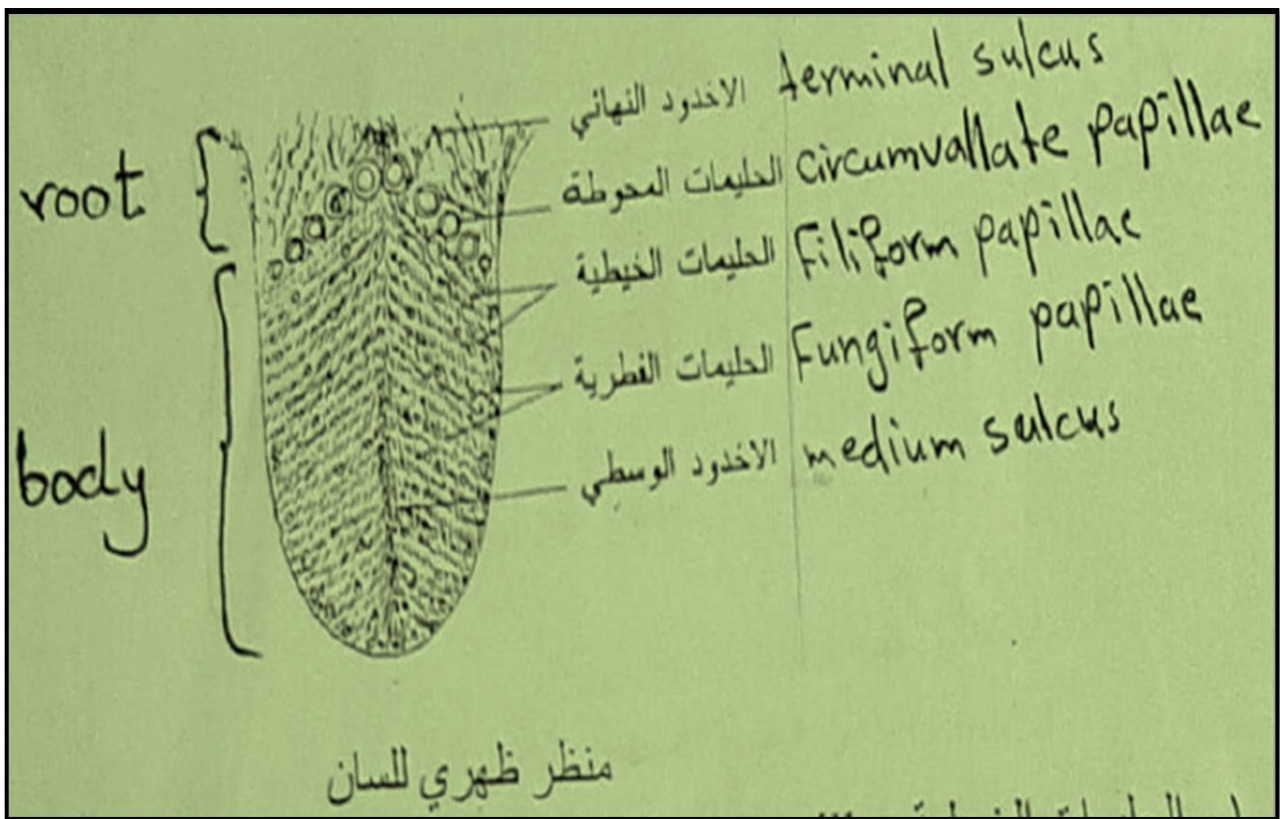 الاخدود النهائي terminal sulcus
الحليمات المحوطة circumvallate papillae
root
الحليمات الخيطية Filiform papillae
الحليمات الفطرية Fungiform papillae
body
الاخدود الوسطي medium sulcus
منظر ظهري للسان